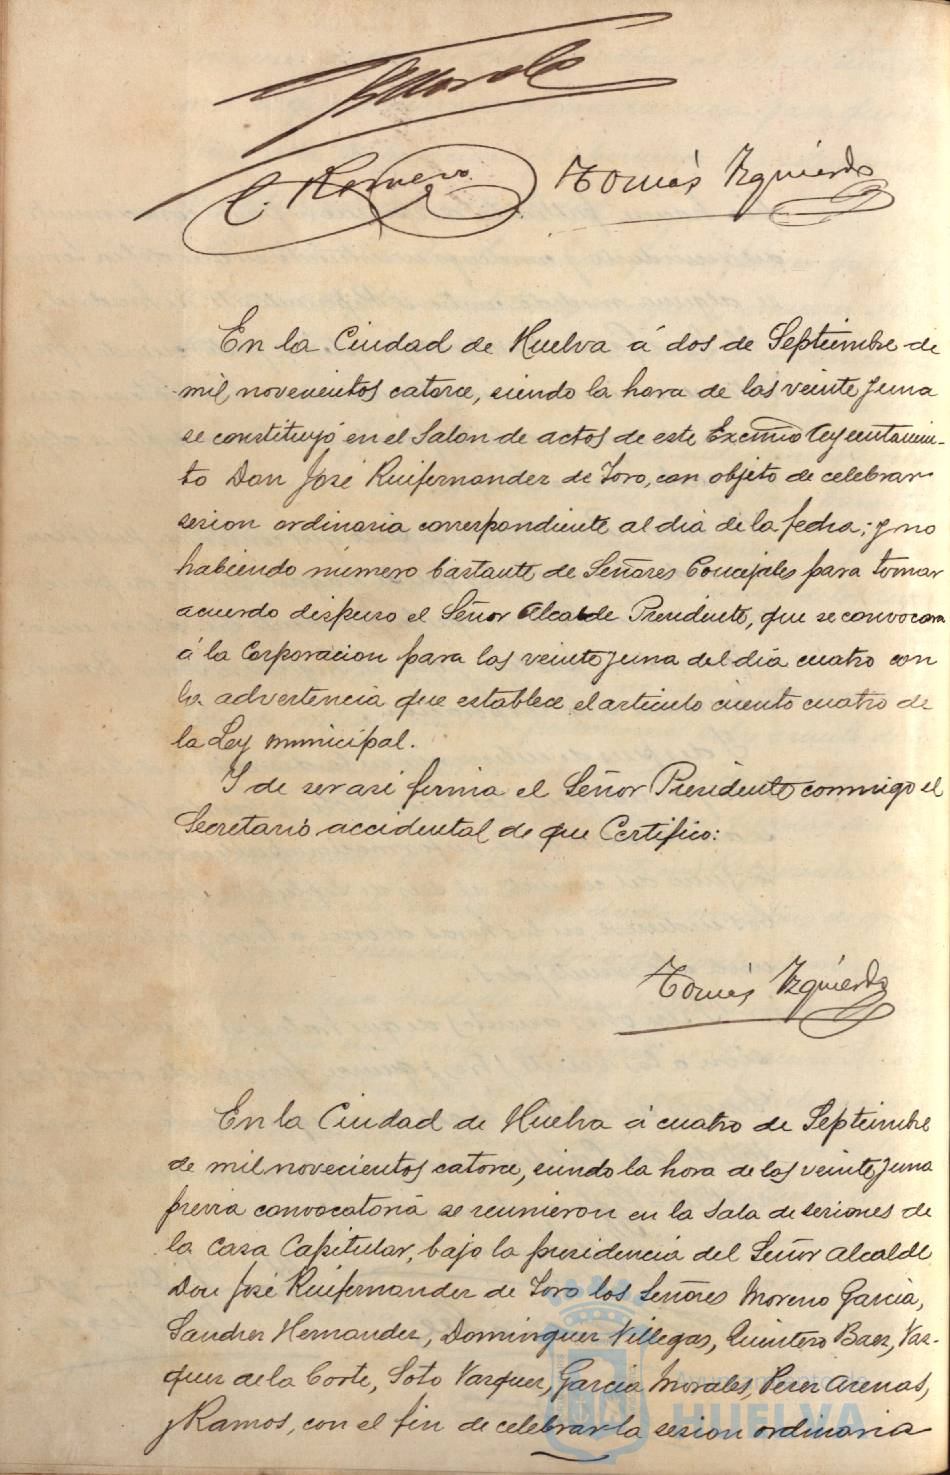 C. Romero Tomás Izquierdo
En la Ciudad de Huelva á dos de Septiembre de
mil novecientos catorce, siendo la hora de las veinte y una
se constituyó en el Salon de actos de este Excmo Ayuntamien-
to Don José Ruifernandez de Toro, con objeto de celebrar
sesion ordinaria correspondiente al dia de la fecha; y no
habiendo número bastante de Señores Concejales para tomar
acuerdo dispuso el Señor Alcalde Presidente, que se convocara
á la Corporacion para las veinte y una del dia cuatro con
la advertencia que establece el articulo ciento cuatro de
la Ley municipal.
Y de ser asi firma el Señor Presidente conmigo el
Secretario accidental de que Certifico:
Tomás Izquierdo
En la Ciudad de Huelva á cuatro de Septiembre
de mil novecientos catorce, siendo la hora de las veinte y una
previa convocatoria se reunieron en la Sala de sesiones de
la Casa Capitular, bajo la presidencia del Señor Alcalde
Don José Ruifernandez de Toro los Señores Moreno Garcia,
Sandrez Hernandez, Dominguez Villegas, Quintero Baez, Vaz-
quez de la Corte, Soto Vazquez, Garcia Morales, Perez Arenas,
y Ramos, con el fin de celebrar la sesion ordinaria
Ayuntamiento de
HUELVA